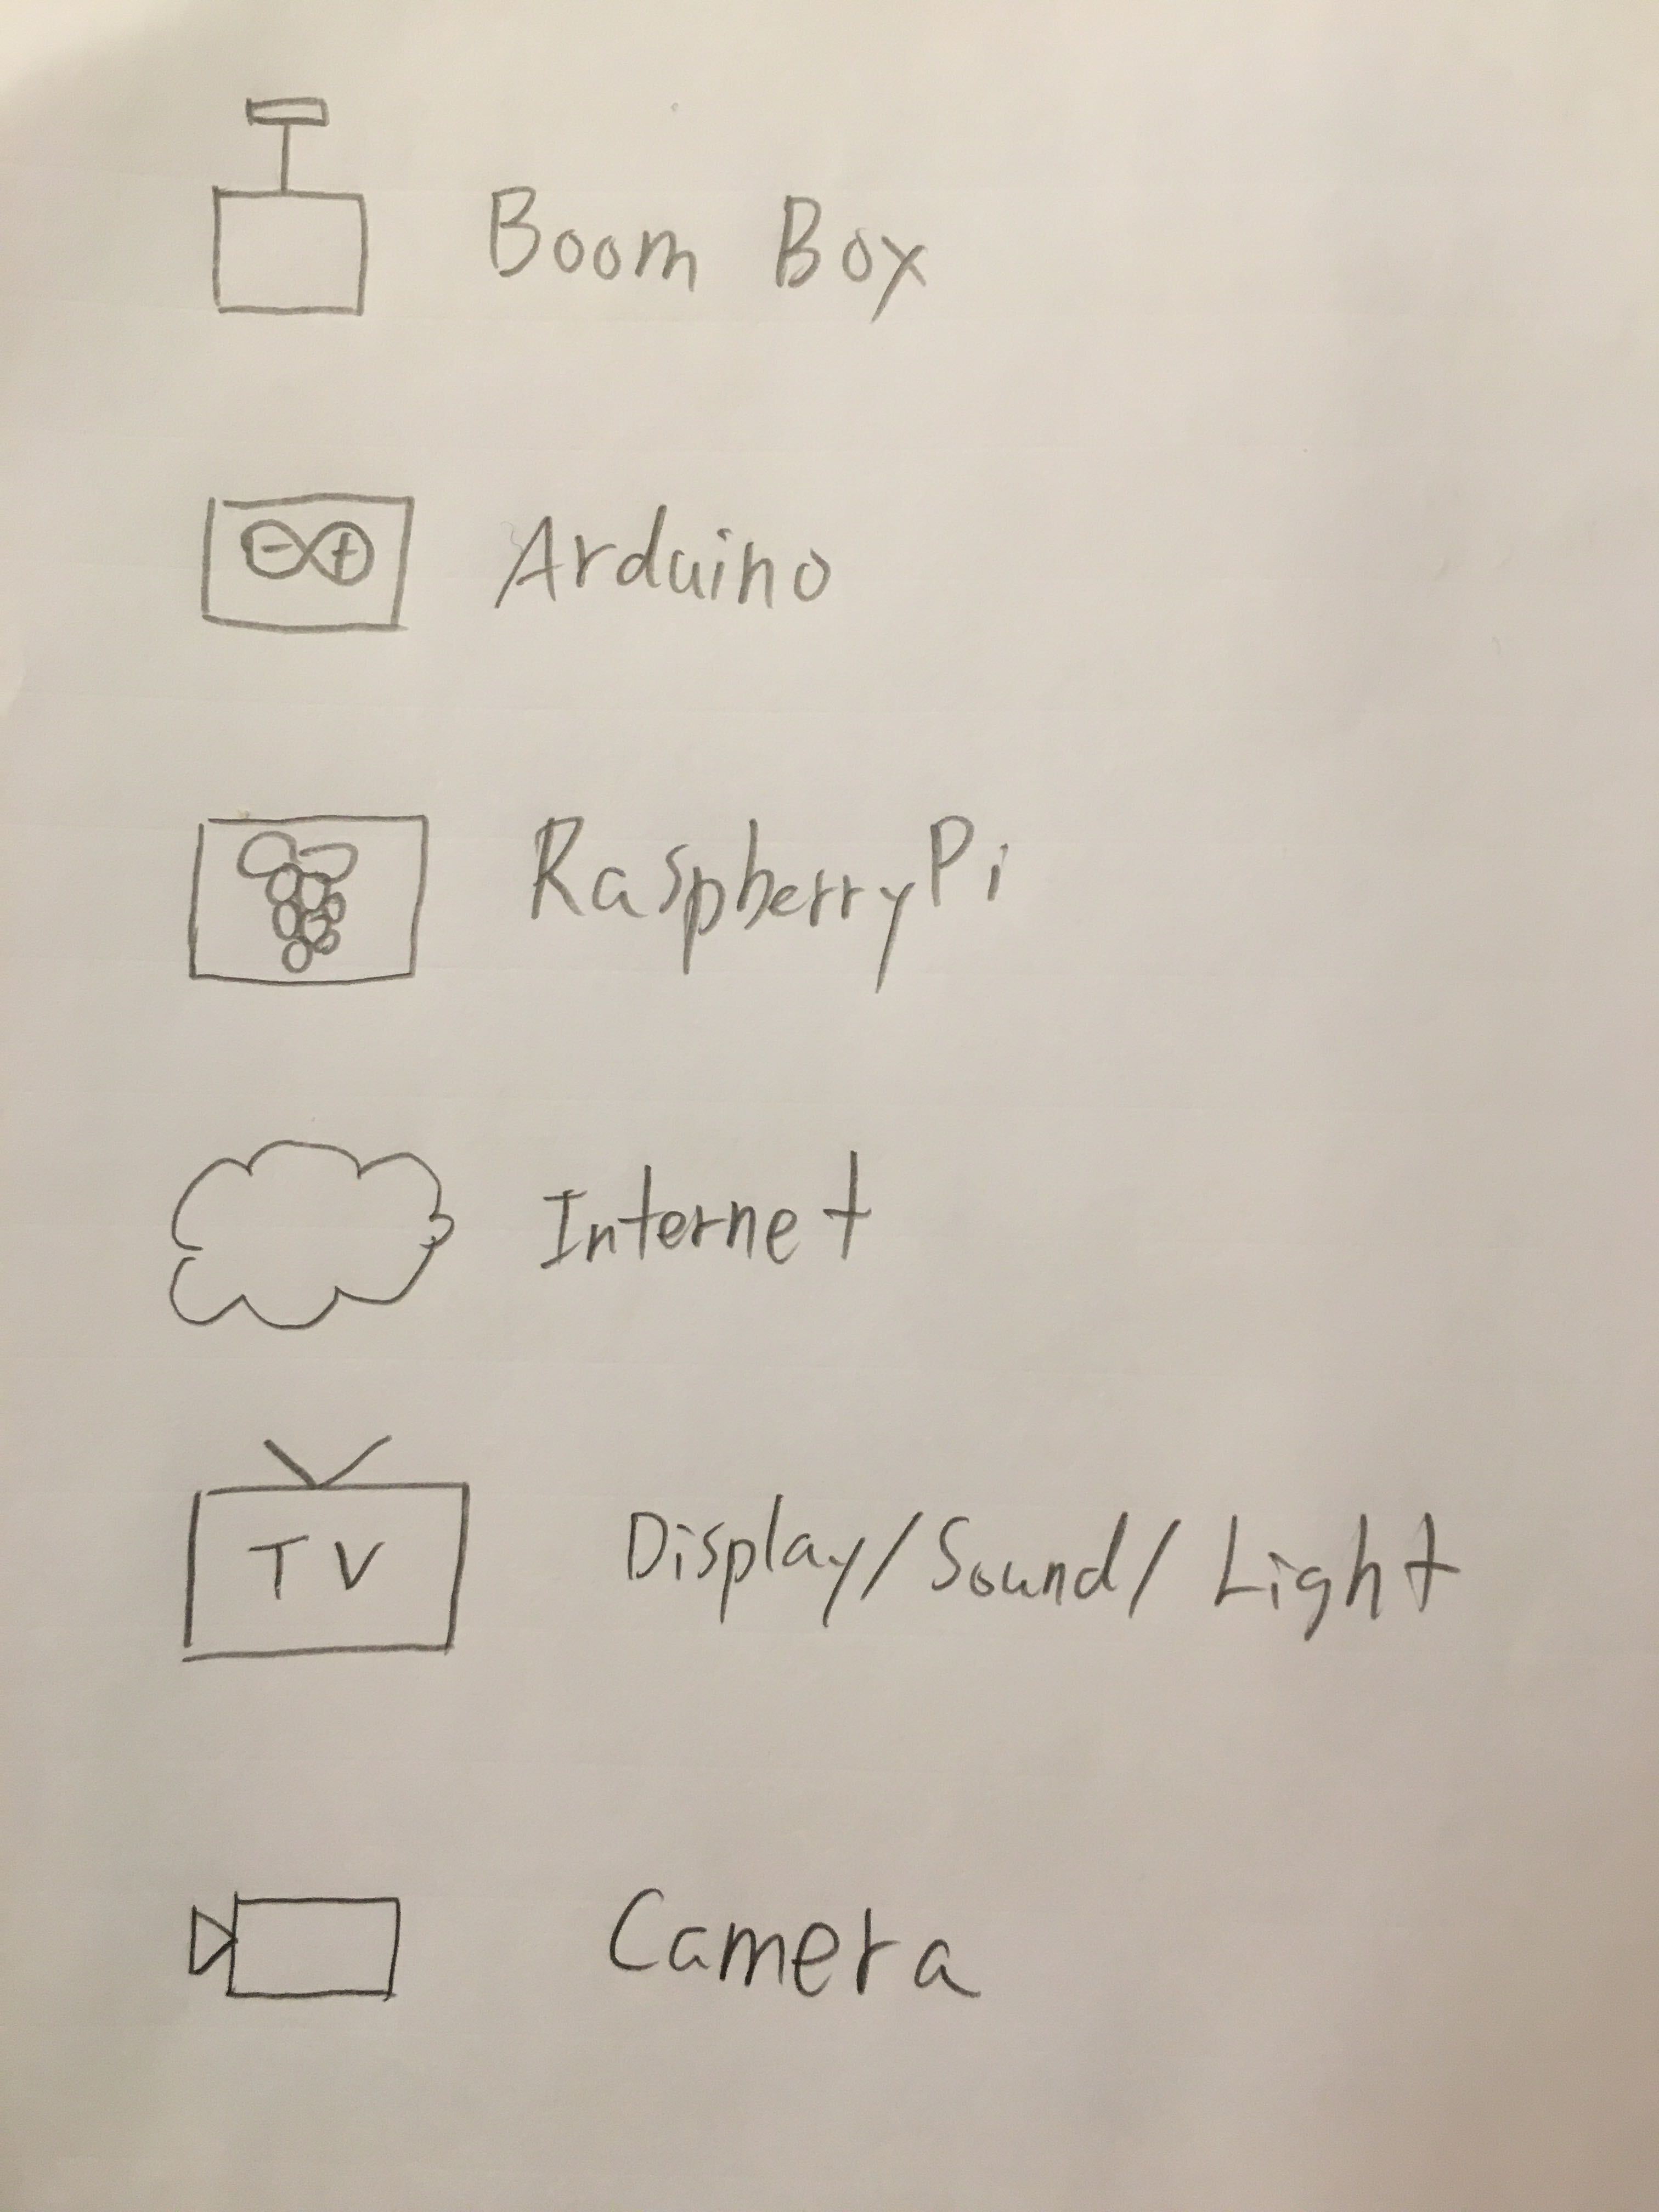 Boom Box
Arduino
RaspberryPi
Internet
TV Display/Sound/Light
Camera